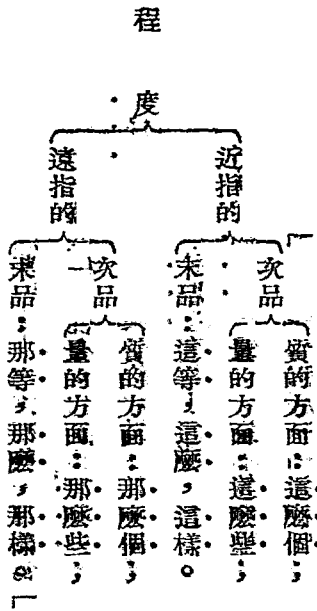 程度
近指的
次品
質的方面：這麼個；
量的方面：這麼些；
末品：這等，這麼，這樣。
遠指的
次品
質的方面：那麼個；
量的方面：那麼些；
末品：那等，那麼，那樣。